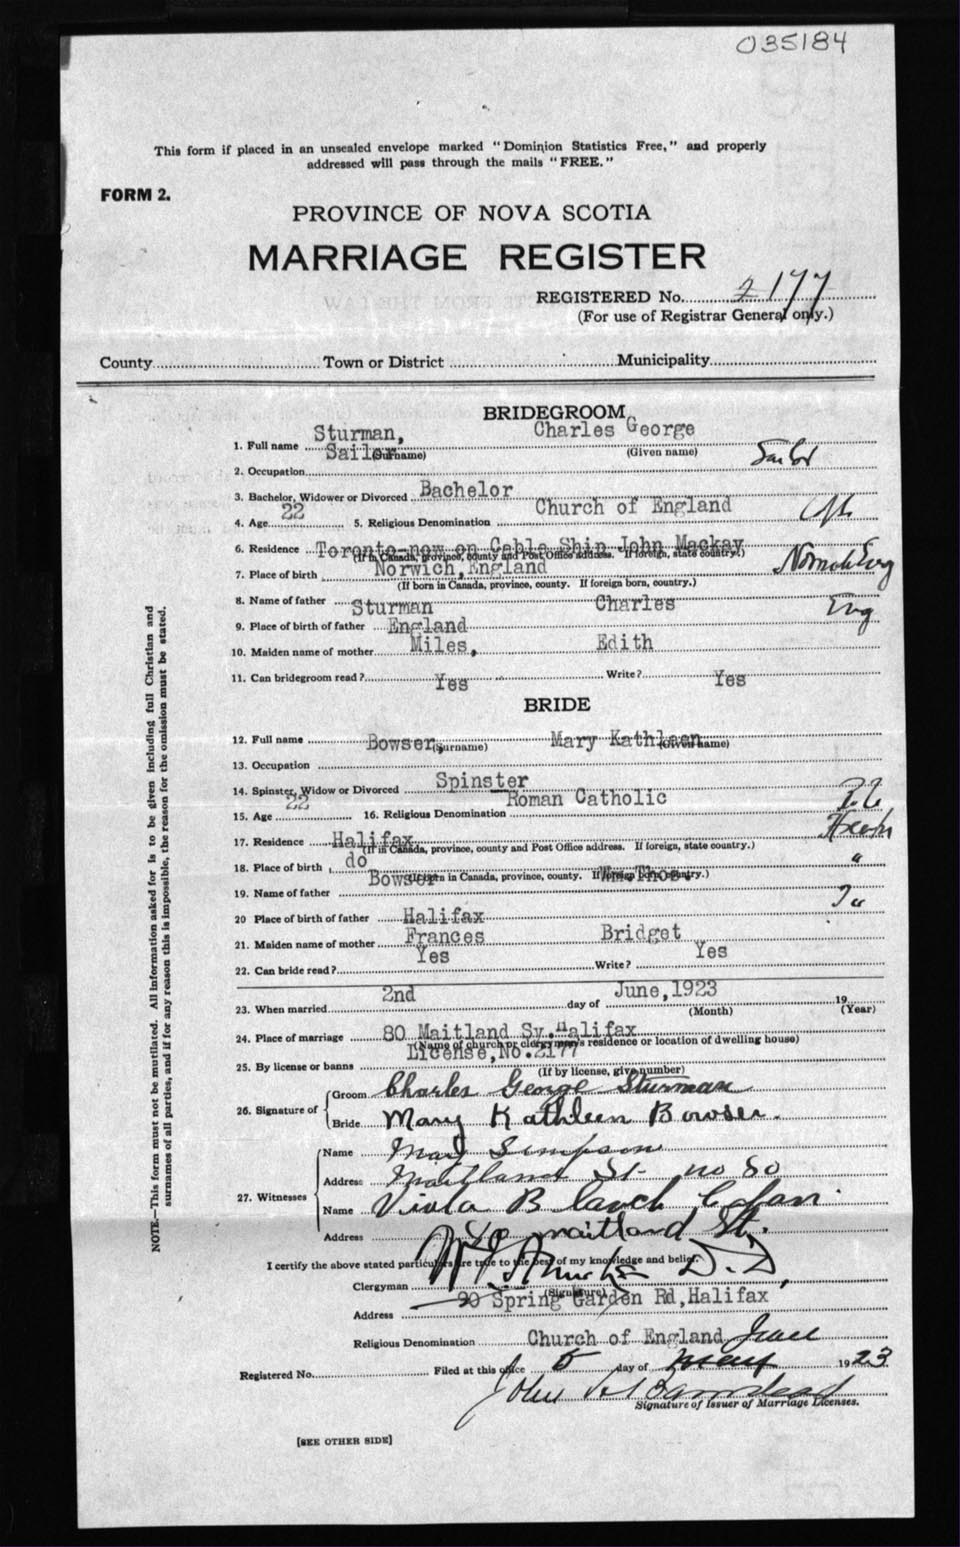 035184
This form if placed in an unsealed envelope marked "Dominion Statistics Free," and properly
addressed will pass through the mails "FREE."
FORM 2.
PROVINCE OF NOVA SCOTIA
MARRIAGE REGISTER
REGISTERED No. 2177
(For use of Registrar General only.)
County Town or District Municipality
BRIDEGROOM
1. Full name Sturman, Charles George
(Surname) (Given name)
2. Occupation Sailor Sailor
3. Bachelor, Widower or Divorced Bachelor
4. Age 22 5. Religious Denomination Church of England
6. Residence Toronto-now on Cable Ship John Mackay
(If in Canada, province, county and Post Office address. If foreign, state country.)
7. Place of birth Norwich, England
(If born in Canada, province, county. If foreign born, country.)
8. Name of father Sturman Charles Eng
9. Place of birth of father England
10. Maiden name of mother Miles, Edith
11. Can bridegroom read? Yes Write? Yes
BRIDE
12. Full name Bowser, Mary Kathleen
(Surname) (Given name)
13. Occupation
14. Spinster, Widow or Divorced Spinster
15. Age 22 16. Religious Denomination Roman Catholic
17. Residence Halifax
(If in Canada, province, county and Post Office address. If foreign, state country.)
18. Place of birth do "
(If born in Canada, province, county. If foreign born, country.)
19. Name of father Bowser Wm. Thos.
20 Place of birth of father Halifax
21. Maiden name of mother Frances Bridget
22. Can bride read? Yes Write? Yes
23. When married 2nd day of June, 1923 19
(Month) (Year)
24. Place of marriage 80 Maitland Sv. Halifax
(Name of church or clergyman's residence or location of dwelling house)
25. By license or banns License, No. 2177
(If by license, give number)
26. Signature of Groom Charles George Sturman
Bride Mary Kathleen Bowser.
27. Witnesses Name Mary Simpson
Address Maitland St- no 80
Name Viola Blanch
Address maitland St.
I certify the above stated particulars are true to the best of my knowledge and belief.
Clergyman D.D,
(Signature)
Address 90 Spring Garden Rd, Halifax
Religious Denomination Church of England
Registered No. Filed at this office 5 day of 1923
John
Signature of Issuer of Marriage Licenses.
[SEE OTHER SIDE]
NOTE.—This form must not be mutilated. All information asked for is to be given including full Christian and
surnames of all parties, and if for any reason this is impossible, the reason for the omission must be stated.